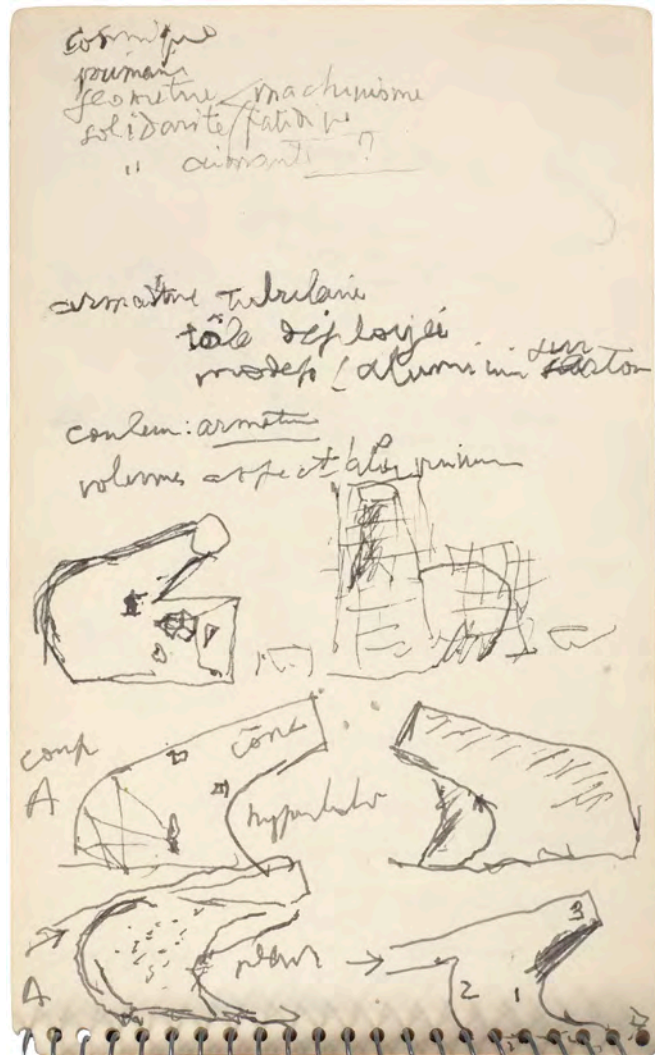 cosmique
humain
géométrie machinisme
solidarité fatidique
" aimanté ?
armature tubulaire
tôle déployée
modep / aluminium sur
couleur: armature
volumes aspect aluminium
coupe
cône
A
hyperbolo
plan
A
3
2 1